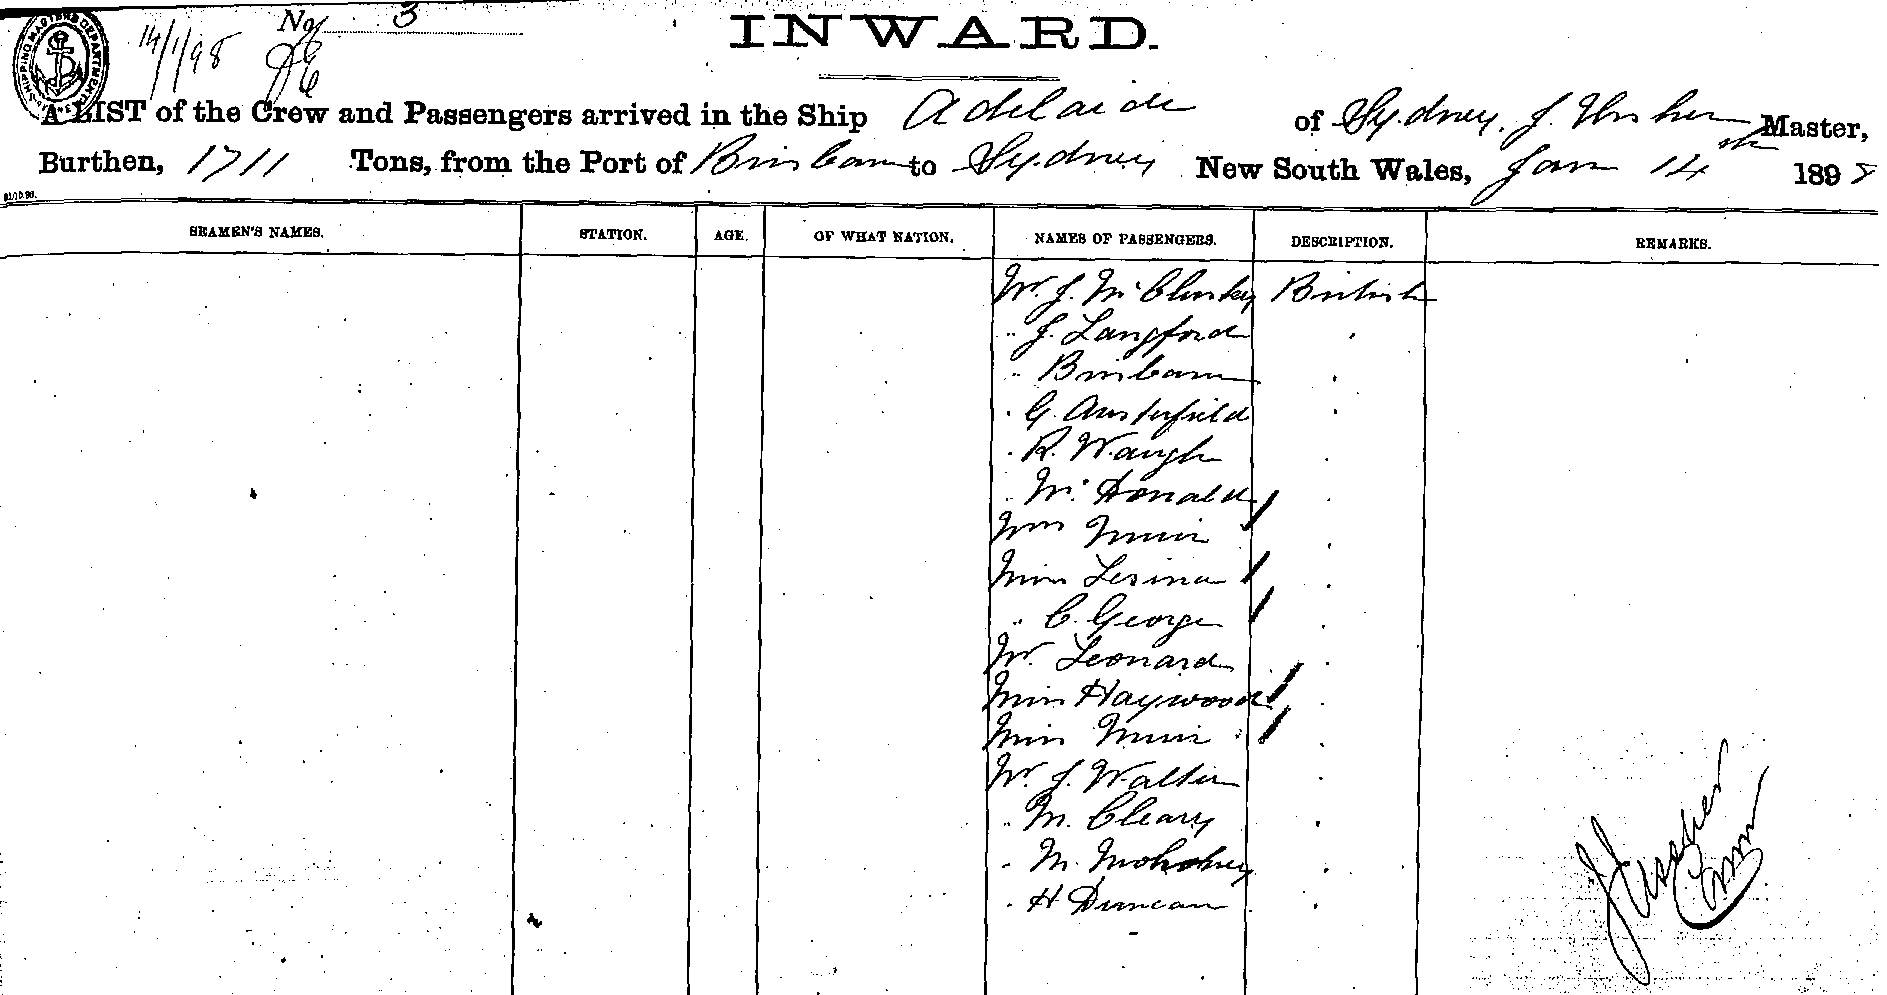 14/1/98
No. 3
INWARD.
A LIST of the Crew and Passengers arrived in the Ship Adelaide of Sydney, J. Ussher Master,
Burthen, 1711 Tons, from the Port of Brisbane to Sydney New South Wales, Jan 14th 1898
SEAMEN'S NAMES. STATION. AGE. OF WHAT NATION. NAMES OF PASSENGERS. DESCRIPTION. REMARKS.
Mr. J. McClusky British
" J. Langford
" Brisbane
" G. Austerfield
" R. Waugh
" McDonald
Mrs Muir
Miss Lesina
" C. George
Mr. Leonard
Miss Haywood
Miss Muir
Mr. J. Walter
" M. Cleary
" M. Molohney
" H Duncan
J Ussher